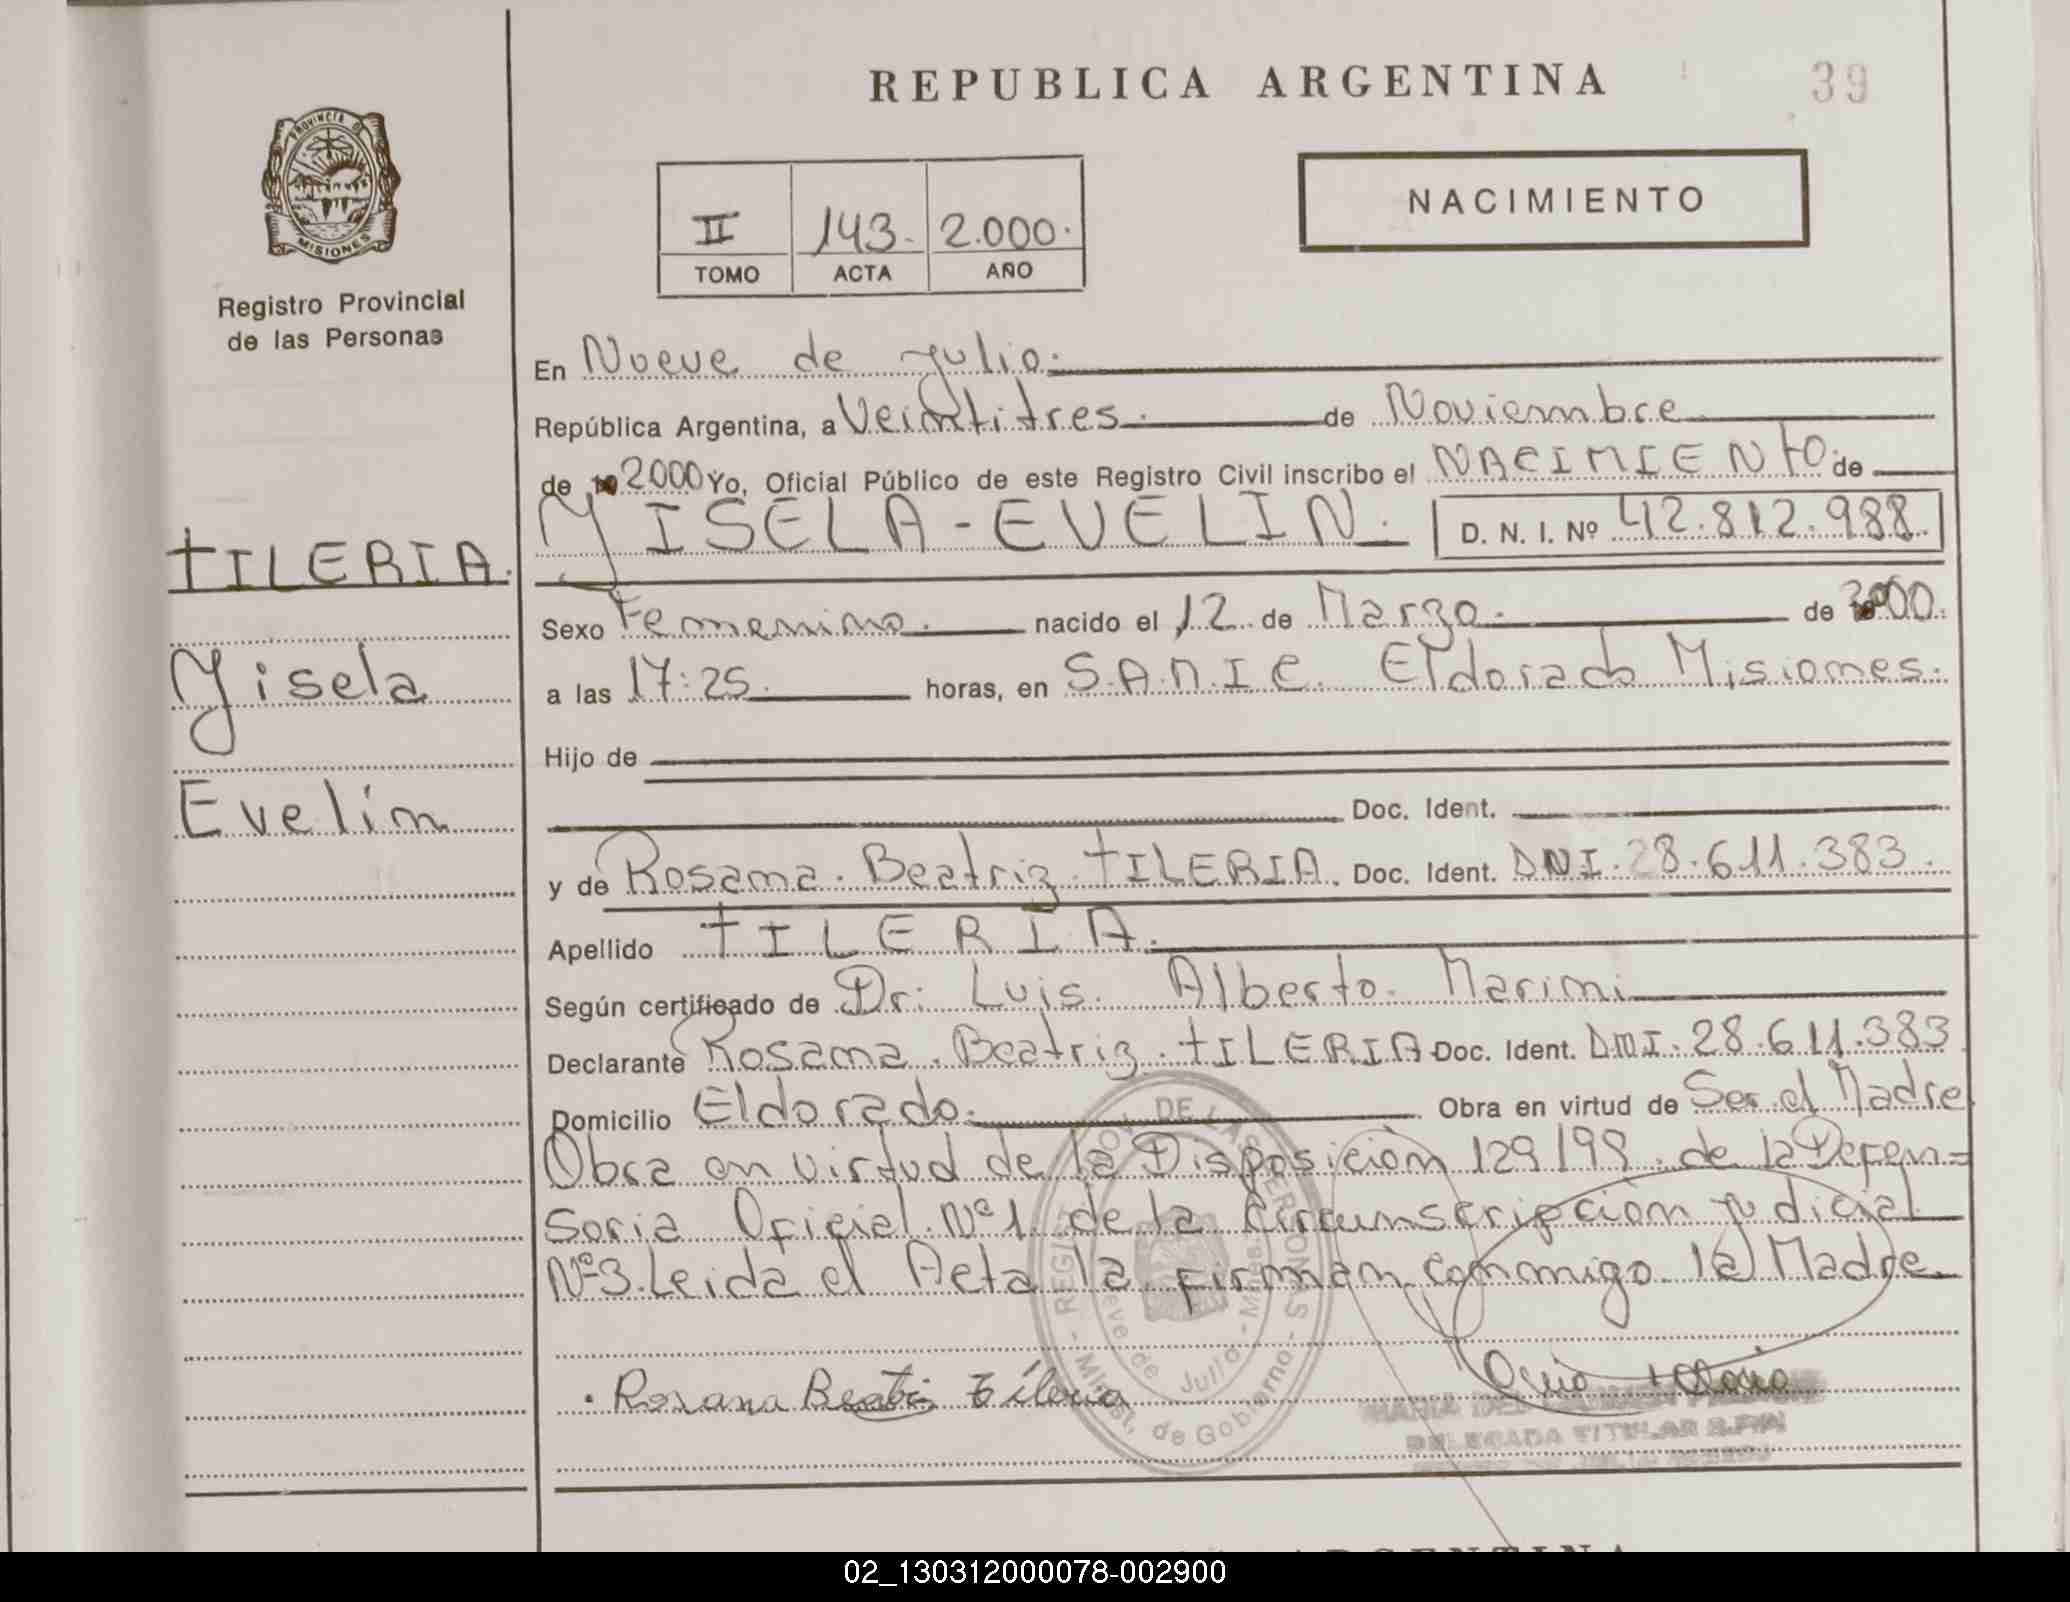 REPUBLICA ARGENTINA
39
PROVINCIA DE
MISIONES
Registro Provincial
de las Personas
II 143. 2.000.
TOMO ACTA AÑO
NACIMIENTO
En Nueve de Julio.
República Argentina, a Veintitres. de Noviembre
de 2000 Yo, Oficial Público de este Registro Civil inscribo el NACIMIENTO de
YISELA-EVELIN. D. N. I. Nº 42.812.988.
TILERIA.
Yisela
Evelin
Sexo Femenino. nacido el 12 de Marzo. de 2000.
a las 17:25. horas, en S.A.M.I.C. Eldorado Misiones.
Hijo de
Doc. Ident.
y de Rosana. Beatriz. TILERIA. Doc. Ident. DNI. 28.611.383.
Apellido TILERIA.
Según certificado de Dr: Luis. Alberto. Marini
Declarante Rosana. Beatriz. TILERIA Doc. Ident. DNI. 28.611.383
Domicilio Eldorado. Obra en virtud de Ser el Madre
Obra en virtud de la Disposición 129/99. de la Defen=
soria Oficial. Nº1. de la Circunscripción Judicial
Nº3. Leida el Acta la firman conmigo la Madre
. Rosana Beatriz Tileria
DELEGADA TITULAR R.P.P.
Nueve de Julio - Mnes.
Minist. de Gobierno -
ARGENTINA
02_130312000078-002900